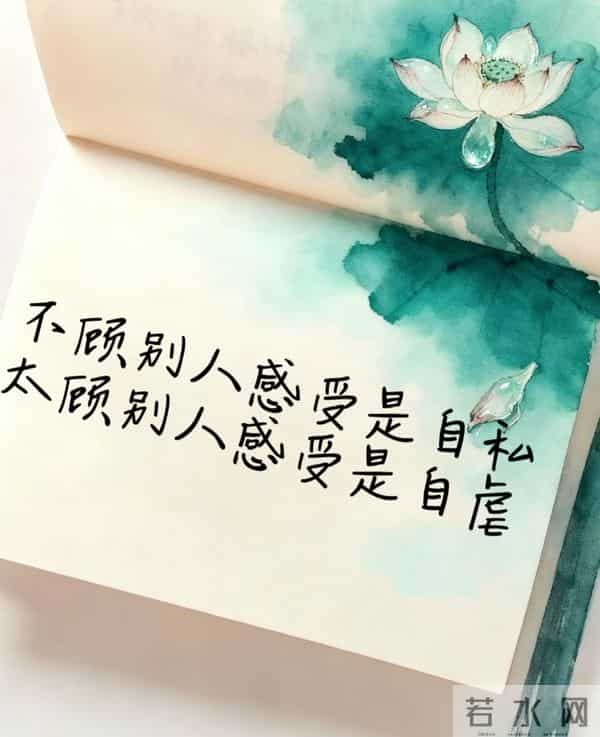 不顾别人感受是自私
太顾别人感受是自虐
若水网